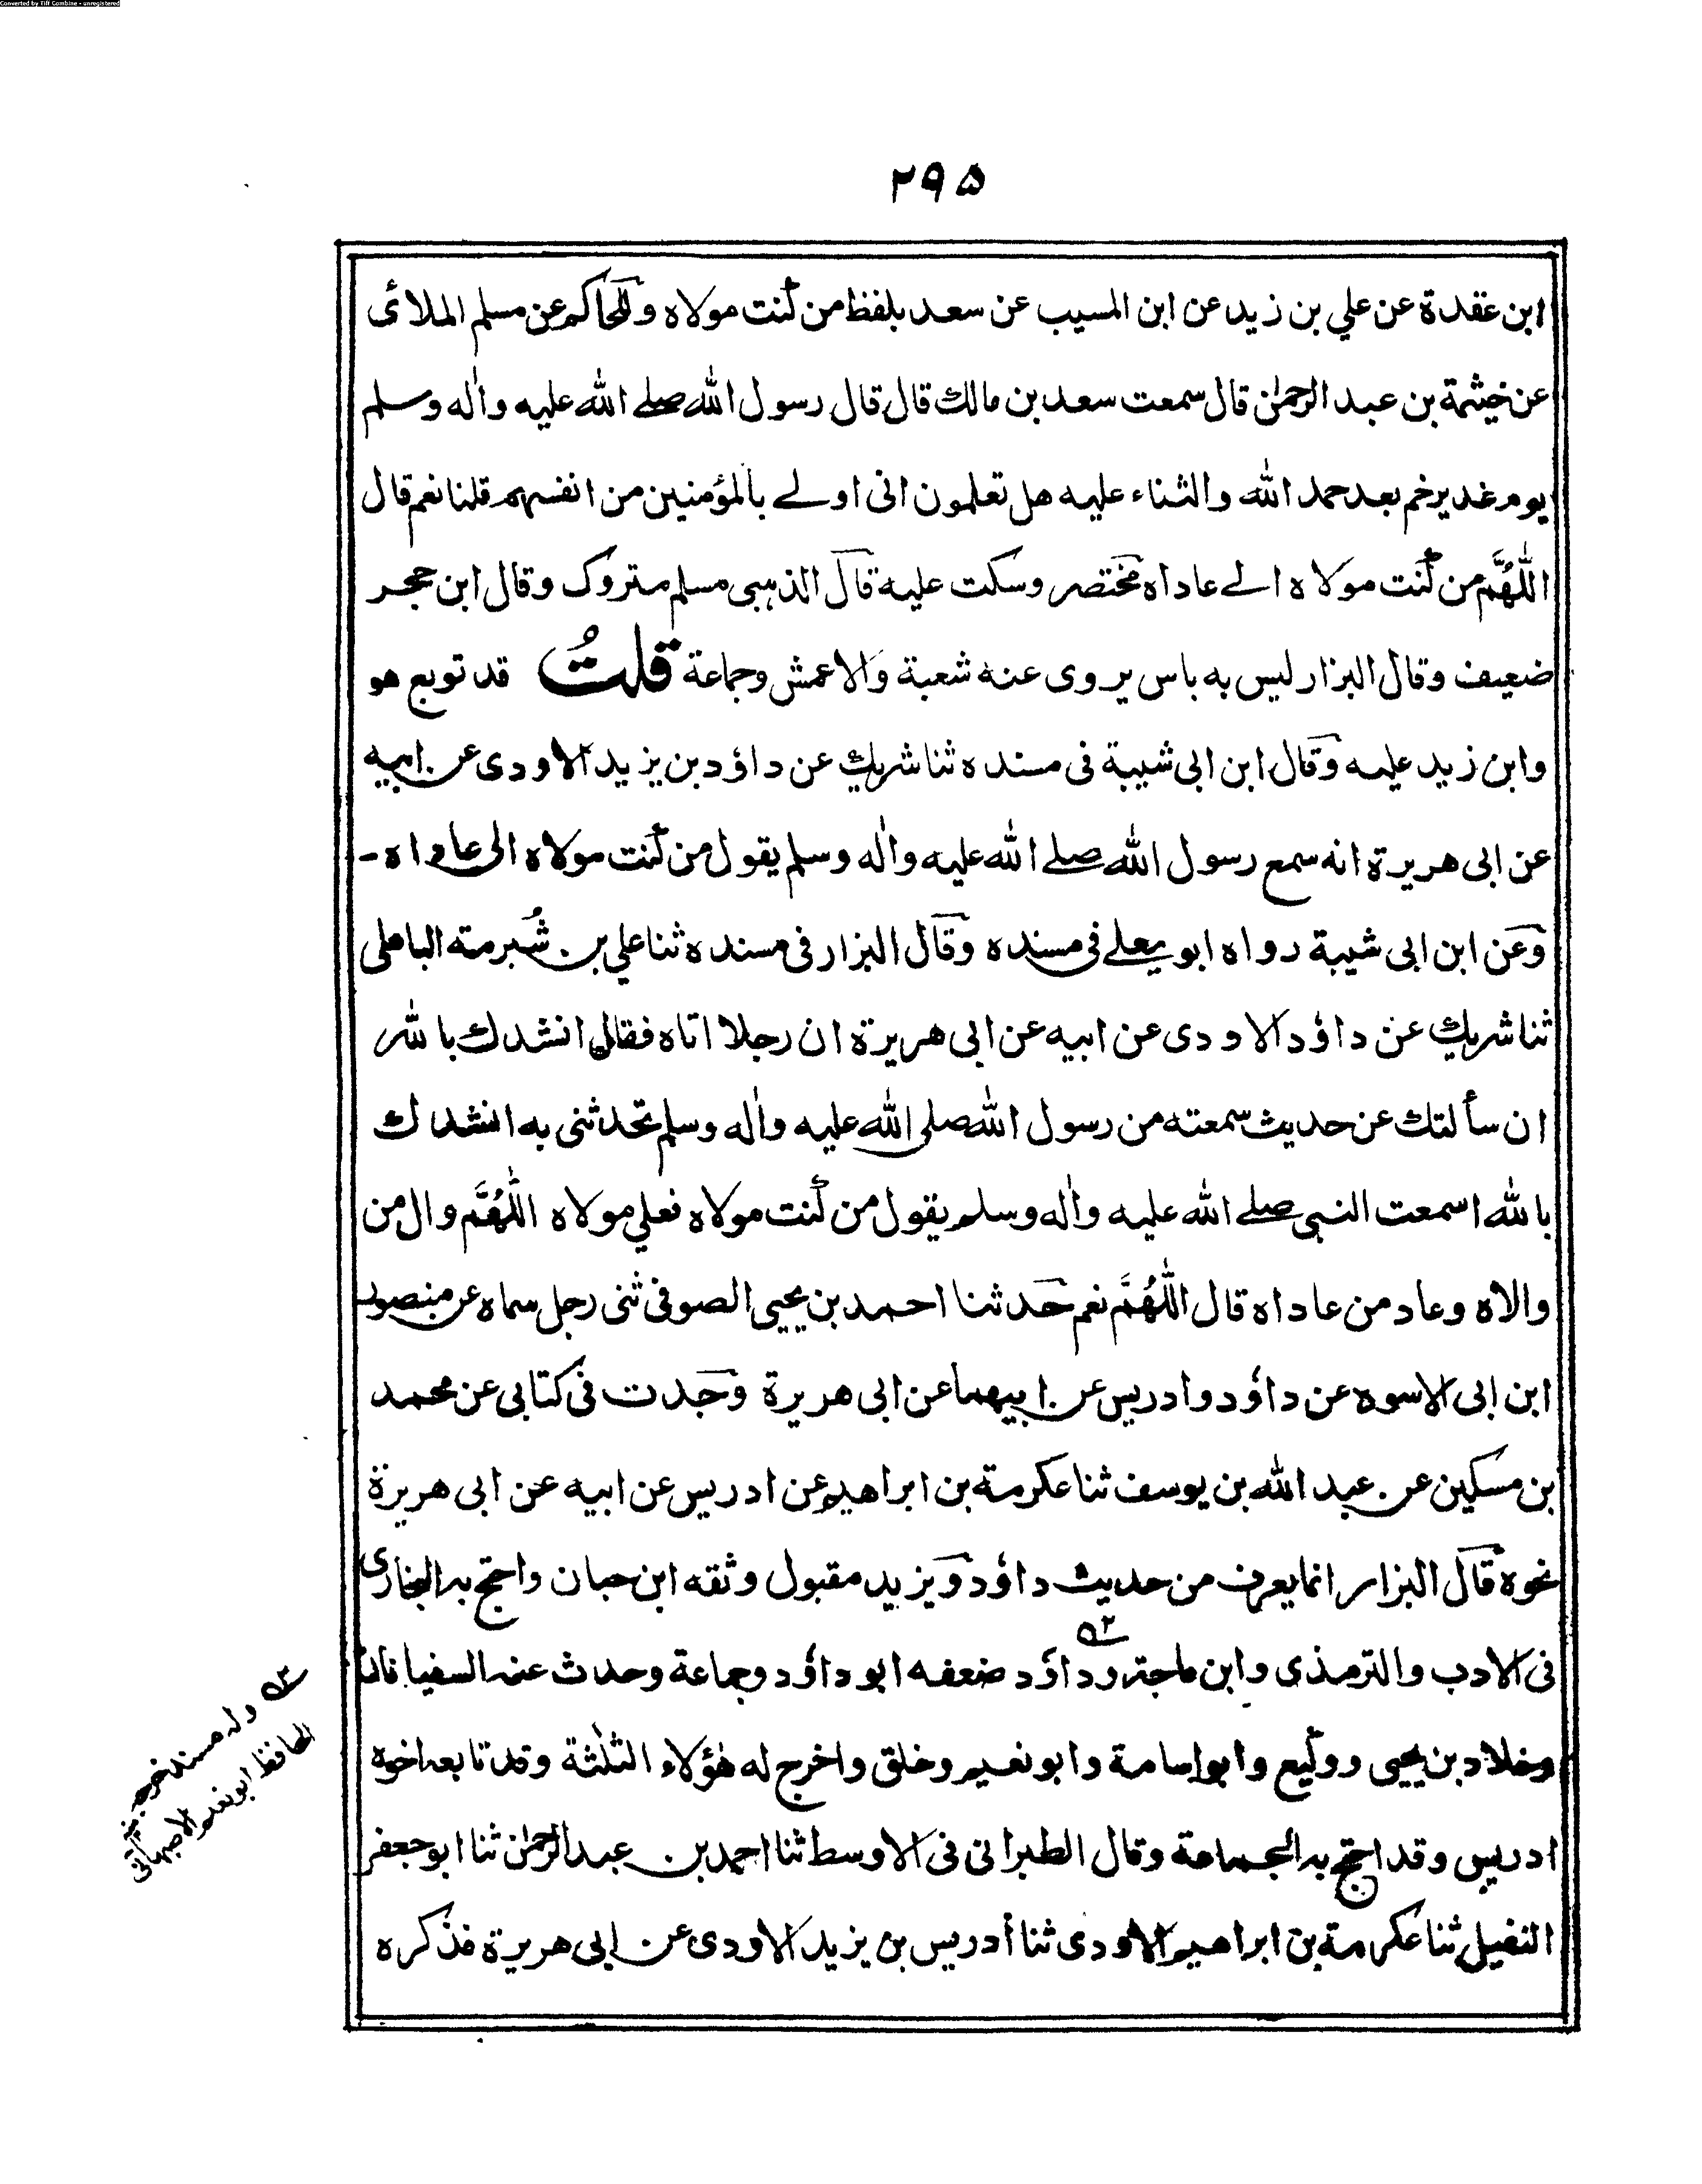 Converted by Tiff Combine - unregistered
۲۹۵
ابن عقدة عن علي بن زيد عن ابن المسيب عن سعد بلفظ من كنت مولاه وللحاكم عن مسلم الملائى
عن خيثمة بن عبد الرحمٰن قال سمعت سعد بن مالك قال قال رسول الله صلے الله عليه واٰله وسلم
يوم غدير خم بعد حمد الله والثناء عليه هل تعلمون انى اولے بالمؤمنين من انفسهم قلنا نعم قال
اللّٰهُمَّ من كنت مولاه الے عاداه مختصر وسكت عليه قال الذهبى مسلم متروك وقال ابن حجر
ضعيف وقال البزار ليس به باس يروى عنه شعبة والاعمش وجماعة قلتُ قد توبع هو
وابن زيد عليه وقال ابن ابى شيبة فى مسنده ثنا شريك عن داؤد بن يزيد الاودى عن ابيه
عن ابى هريرة انه سمع رسول الله صلے الله عليه واٰله وسلم يقول من كنت مولاه الى عاداه -
وعن ابن ابى شيبة رواه ابو يعلے فى مسنده وقال البزار فى مسنده ثنا علي بن شُبرمته الباهلى
ثنا شريك عن داؤد الاودى عن ابيه عن ابى هريرة ان رجلا اتاه فقال انشدك بالله
ان سألتك عن حديث سمعته من رسول الله صلى الله عليه واٰله وسلم تحدثنى به انشدك
بالله اسمعت النبى صلے الله عليه واٰله وسلم يقول من كنت مولاه فعلي مولاه اللّٰهُمَّ وال من
والاه وعاد من عاداه قال اللّٰهُمَّ نعم حدثنا احمد بن يحيى الصوفى ثنى رجل سماه عن منصور
ابن ابى الاسود عن داؤد وادريس عن ابيهما عن ابى هريرة وجدت فى كتابى عن محمد
بن مسكين عن عبد الله بن يوسف ثنا عكرمة بن ابراهيم عن ادريس عن ابيه عن ابى هريرة
نحوه قال البزار انما يعرف من حديث داؤد ويزيد مقبول وثقه ابن حبان واحتج به البخارى
فى الادب والترمذى وابن ماجة وداؤد ۵۲ ضعفه ابو داؤد وجماعة وحدث عنه السفيانان
وخلاد بن يحيى ووكيع وابو اسامة وابو نعيم وخلق واخرج له هٰؤلاء الثلٰثة وقد تابعه اخوه
ادريس وقد احتج به الجماعة وقال الطبرانى فى الاوسط ثنا احمد بن عبد الرحمٰن ثنا ابو جعفر
النفيلي ثنا عكرمة بن ابراهيم الاودى ثنا أدريس بن يزيد الاودى عن ابى هريرة فذكره
وله مسند خرجه
الحافظ ابو نعيم الاصبهانى